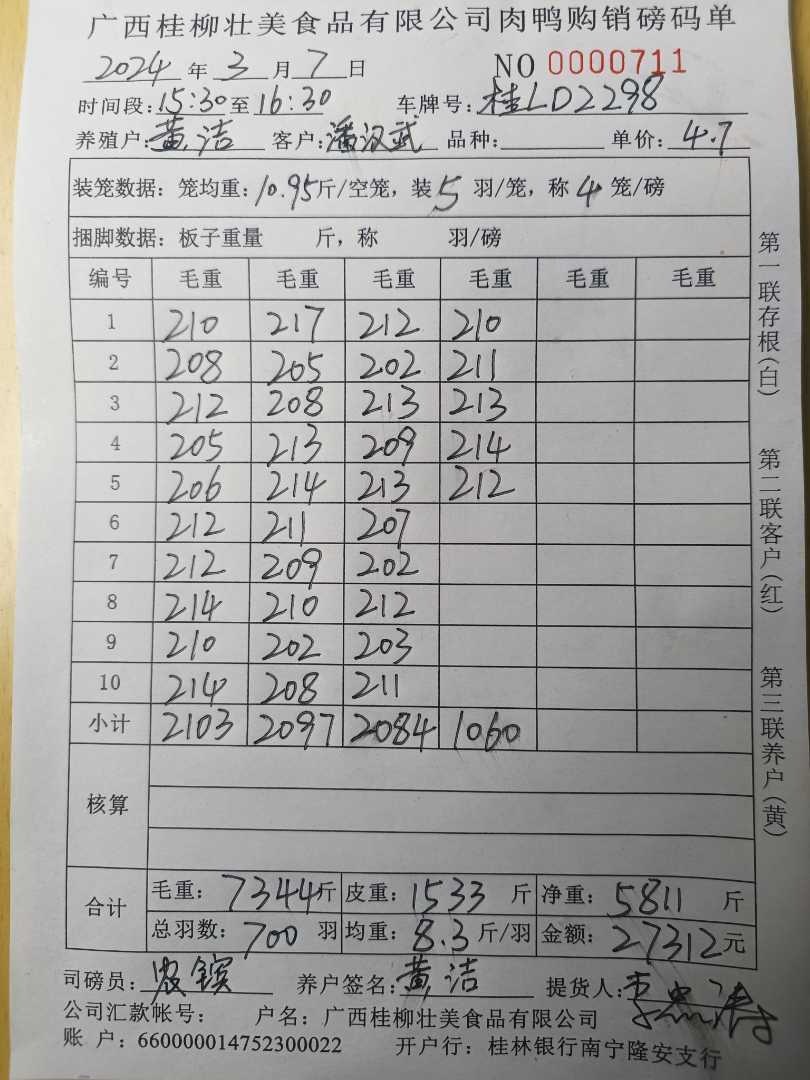 广西桂柳壮美食品有限公司肉鸭购销磅码单
2024年3月7日 NO 0000711
时间段:15:30至16:30 车牌号:桂LD2298
养殖户:黄洁 客户:潘汉武 品种: 单价:4.7
装笼数据：笼均重:10.95斤/空笼，装5羽/笼，称4笼/磅
捆脚数据：板子重量 斤，称 羽/磅
编号 毛重 毛重 毛重 毛重 毛重 毛重
1 210 217 212 210
2 208 205 202 211
3 212 208 213 213
4 205 213 209 214
5 206 214 213 212
6 212 211 207
7 212 209 202
8 214 210 212
9 210 202 203
10 214 208 211
小计 2103 2097 2084 1060
核算
合计 毛重：7344斤 皮重：1533斤 净重：5811斤
总羽数：700羽 均重：8.3斤/羽 金额：27312元
司磅员:农镔 养户签名:黄洁 提货人:李
公司汇款帐号： 户名：广西桂柳壮美食品有限公司
账 户：660000014752300022 开户行：桂林银行南宁隆安支行
第一联存根(白) 第二联客户(红) 第三联养户(黄)